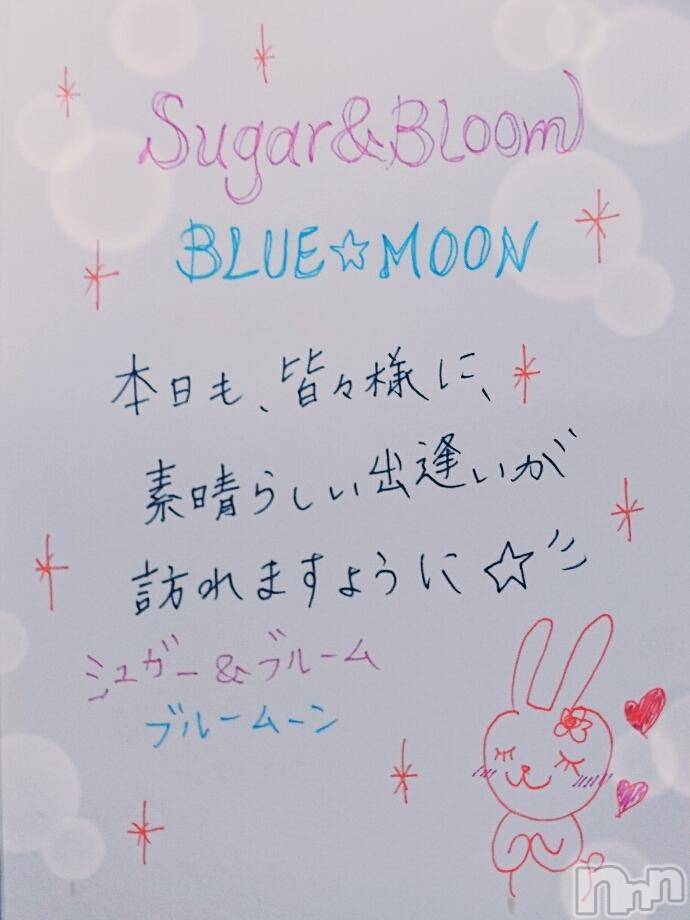 Sugar&Bloom
BLUE☆MOON
本日も、皆々様に、
素晴らしい出逢いが
訪れますように☆
シュガー&ブルーム
ブルームーン
nnn